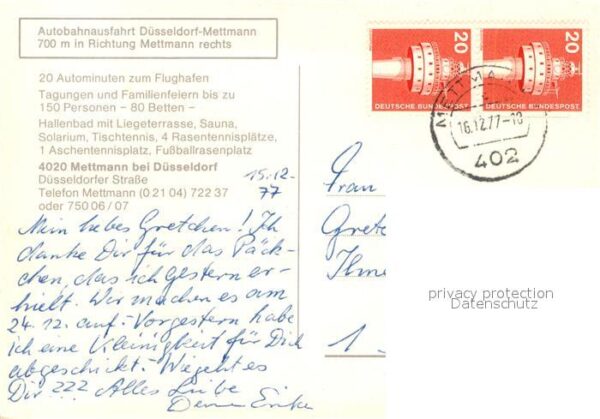 Autobahnausfahrt Düsseldorf-Mettmann
700 m in Richtung Mettmann rechts
20 Autominuten zum Flughafen
Tagungen und Familienfeiern bis zu
150 Personen – 80 Betten –
Hallenbad mit Liegeterrasse, Sauna,
Solarium, Tischtennis, 4 Rasentennisplätze,
1 Aschentennisplatz, Fußballrasenplatz
4020 Mettmann bei Düsseldorf
Düsseldorfer Straße
Telefon Mettmann (0 21 04) 722 37
oder 750 06 / 07
15.12.
77
Mein liebes Gretchen! Ich
danke Dir für das Päck-
chen, das ich gestern er-
hielt. Wir machen es am
24.12. auf. Vorgestern habe
ich eine Kleinigkeit für Dich
abgeschickt. Wie geht es
Dir ??? Alles Liebe
Deine Erika
20
20
DEUTSCHE BUNDESPOST
DEUTSCHE BUNDESPOST
METTMA
16.12.77-18
402
Frau
Grete
Ilme
1-
privacy protection
Datenschutz